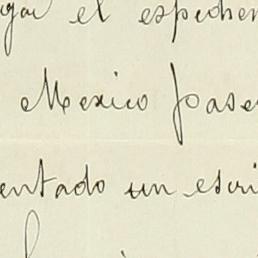 gar el espedien
Mexico pase
entado un escri